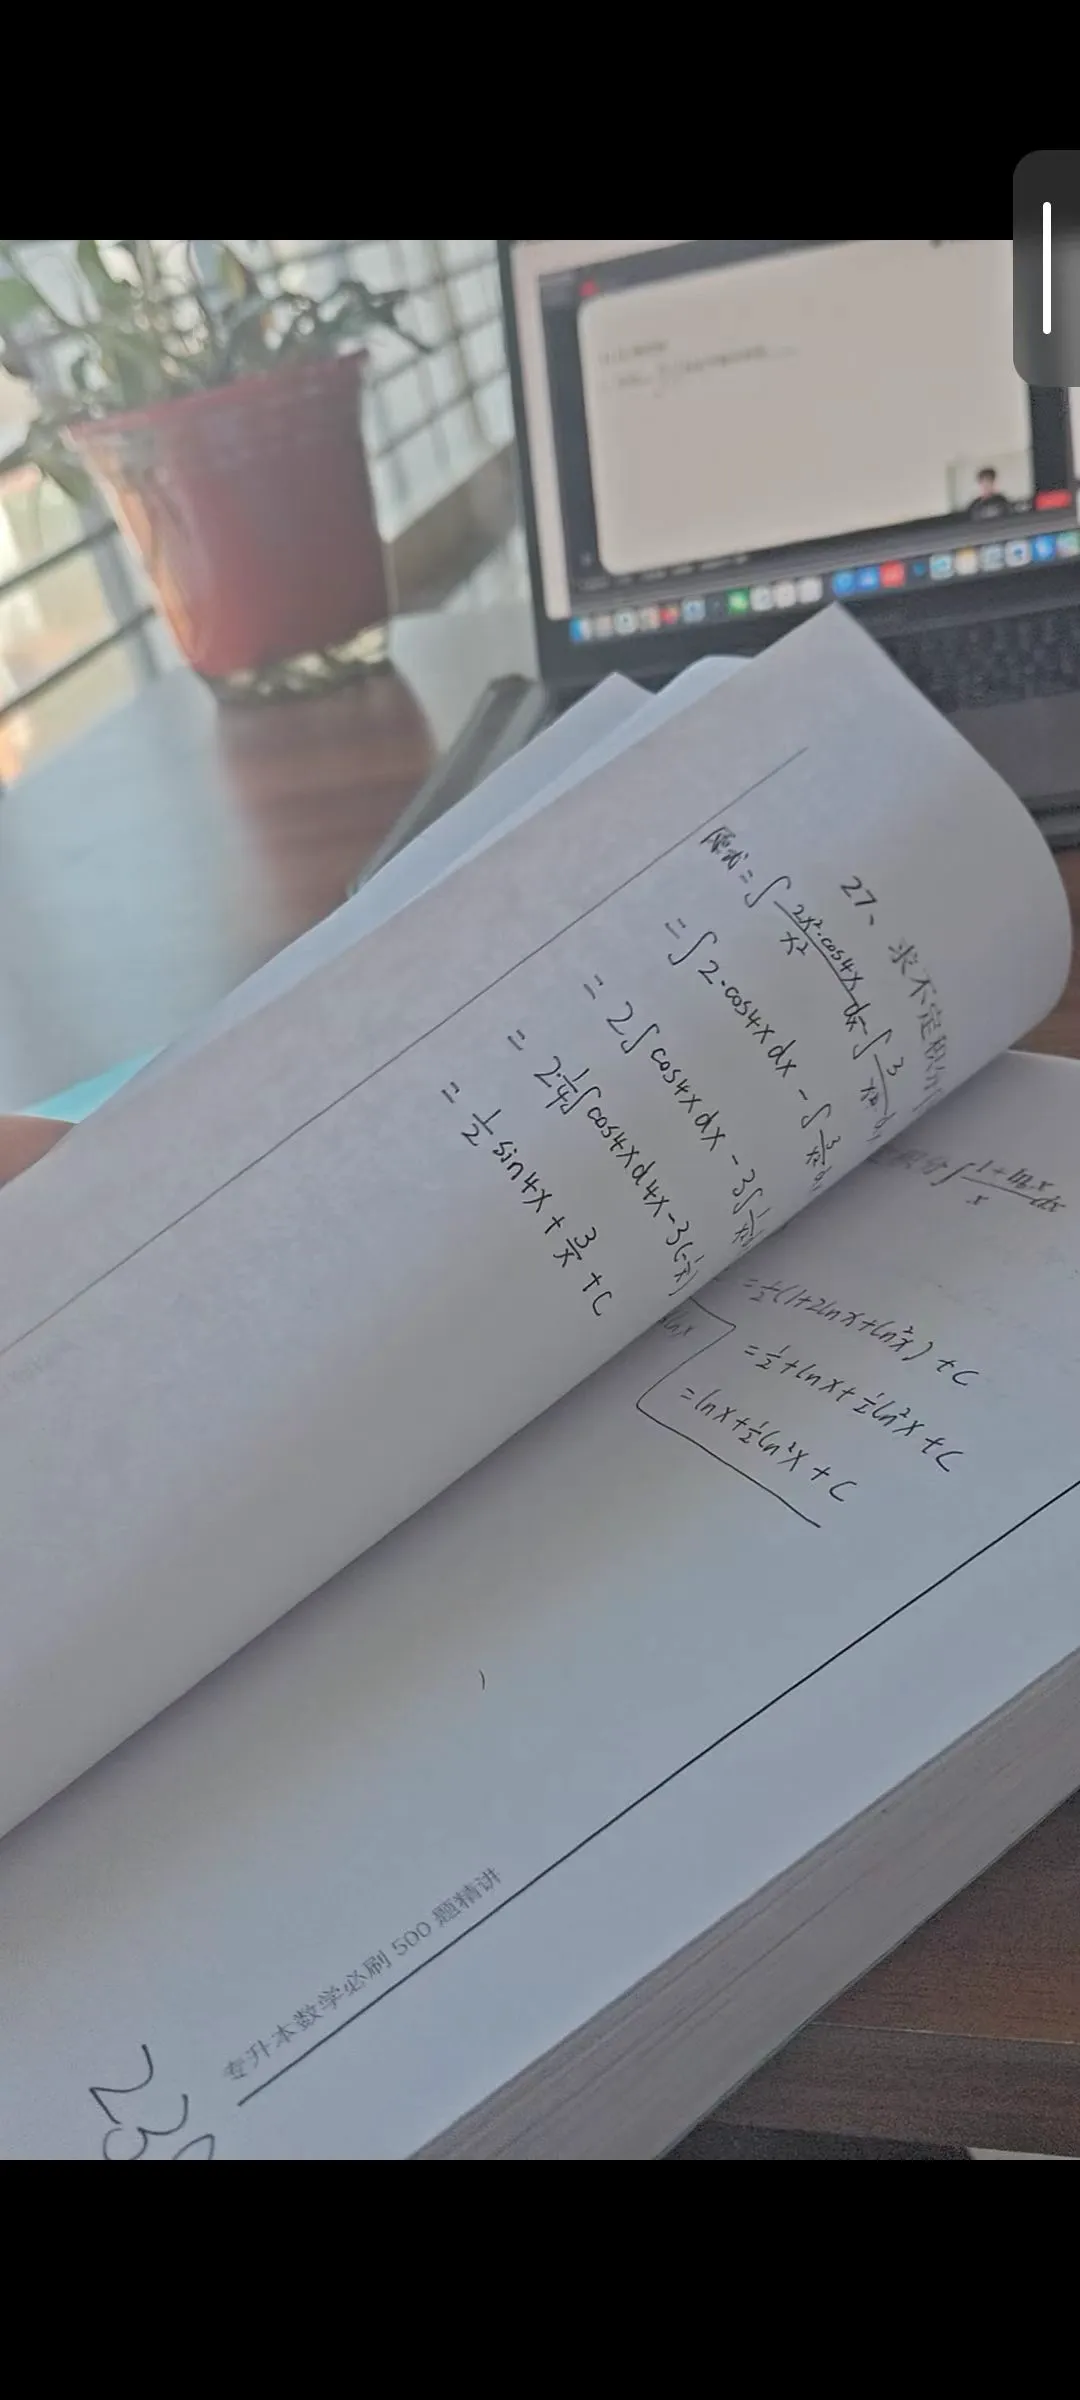 27、求不定积分
原式=∫2x²·cos4x/x² dx-∫3/x² dx
=∫2·cos4x dx-∫3/x² dx
=2∫cos4x dx-3∫1/x²
=2·1/4∫cos4x d4x-3(-1/x)
=1/2 sin4x+3/x+C
积分∫1+lnx/x dx
=1/2(1+2lnx+ln²x)+C
=1/2+lnx+1/2ln²x+C
lnx
=lnx+1/2ln²x+C
专升本数学必刷500题精讲